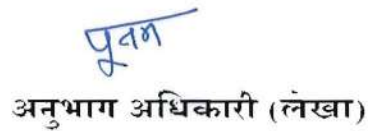 पूनम
अनुभाग अधिकारी (लेखा)